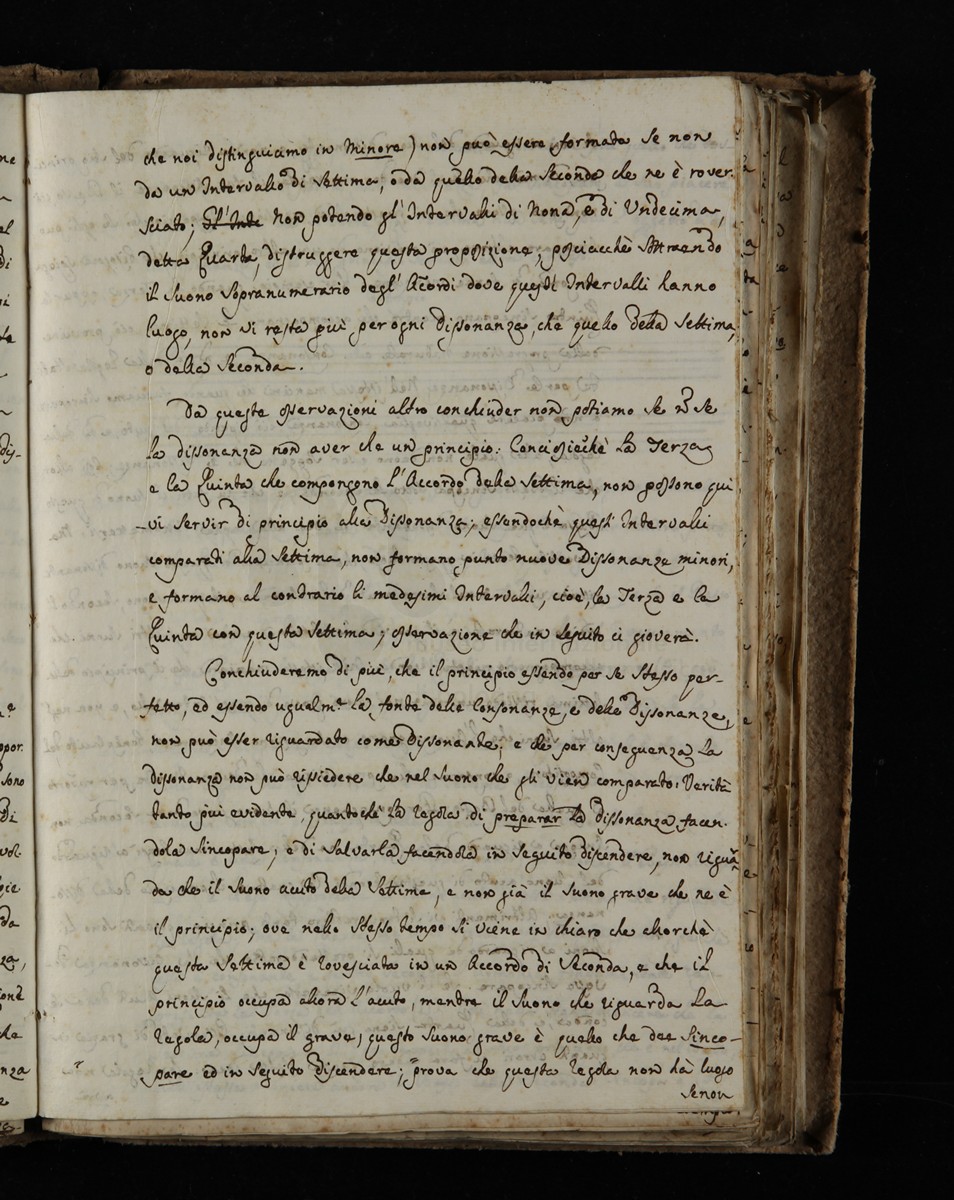 che noi distinguiamo in Minore) non può essere formata se non
da un Intervallo di Settima, o da quello della Seconda che ne è rover-
sciato; Gl'Inte Non potendo gl'Intervalli di Nona, e di Undecima,
detta Quarta, distruggere questa proposizione; posciacchè
il Suono Sopranumerario degl'Accordi dove questi Intervalli hanno
luogo, non vi resta più per ogni Dissonanza, che quello della Settima,
o della Seconda.
Da queste osservazioni altro conchiuder non potiamo se n̄ se
la dissonanza non aver che un principio. Conciosiachè La Terza
e la Quinta che compongono l'Accordo della Settima, non possono qui
vi servir di principio alla Dissonanza; essendochè quest'Intervalli
comparati alla Settima, non formano punto nuove Dissonanze minori,
e formano al contrario li medesimi Intervalli, cioè, la Terza e la
Quinta con questa Settima; osservazione che in seguito ci gioverà.
Conchiuderemo di più, che il principio essendo per se stesso per-
fetto, ed essendo ugualmte la fonte delle Consonanze, e delle Dissonanze,
non può esser riguardato come Dissonante; e che per conseguenza La
dissonanza non può rissiedere che nel Suono che gli vien comparato: Verità
tanto più evidente, quantochè La regola di preparar La dissonanza facen-
dola Sincopare, e di Salvarla facendola in seguito discendere, non riguar
da che il Suono acuto della Settima, e non già il Suono grave che ne è
il principio; ove nello stesso tempo si viene in chiaro che allorchè
questa Settima è rovesciata in un Accordo di Seconda, e che il
principio occupa allora l'acuto, mentre il Suono che riguarda La
regola, occupa il grave, questo Suono grave è quello che dee Sinco-
pare ed in seguito Discendere; prova che questa regola non hà luogo
senon